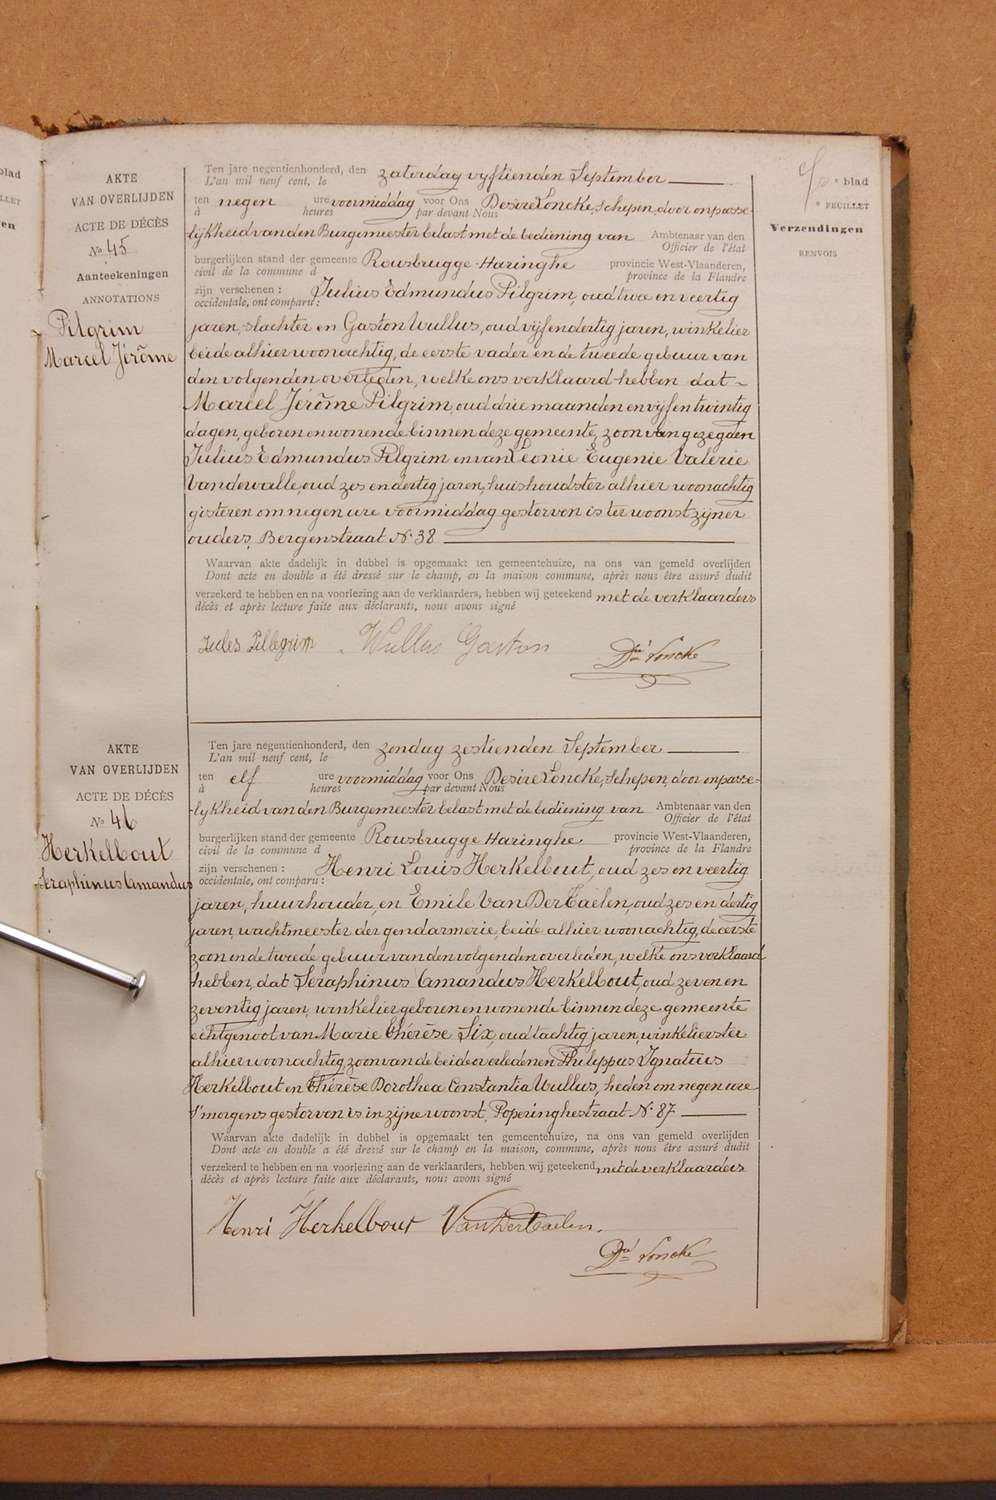 blad
en
AKTE
VAN OVERLIJDEN
ACTE DE DÉCÈS
No 45
Aanteekeningen
ANNOTATIONS
Pilgrim
Marcel Jérôme
Ten jare negentienhonderd, den zaterdag vyftienden September
L'an mil neuf cent, le
ten negen ure voormiddag voor Ons Desiré Loncke, schepen, door onpasse-
à heures par devant Nous
lykheid van den Burgemeester belast met de bediening van Ambtenaar van den
Officier de l'état
burgerlijken stand der gemeente Rousbrugge-Haringhe provincie West-Vlaanderen,
civil de la commune d province de la Flandre
zijn verschenen : Julius Edmundus Pilgrim, oud twee en veertig
occidentale, ont comparu :
jaren, slachter en Gaston Wullus, oud vyfendertig jaren, winkelier
beide alhier woonachtig, de eerste vader en de tweede gebuur van
den volgenden overleden, welke ons verklaard hebben dat
Marcel Jérôme Pilgrim, oud drie maanden en vyf en twintig
dagen, geboren en wonende binnen deze gemeente, zoon van gezegden
Julius Edmundus Pilgrim en van Léonie Eugenie Valerie
Vandewalle, oud zes en dertig jaren, huishoudster alhier woonachtig
gisteren om negen ure voormiddag gestorven is ter woonst zijner
ouders, Bergenstraat No 38
Waarvan akte dadelijk in dubbel is opgemaakt ten gemeentehuize, na ons van gemeld overlijden
Dont acte en double a été dressé sur le champ, en la maison commune, après nous être assuré dudit
verzekerd te hebben en na voorlezing aan de verklaarders, hebben wij geteekend met de verklaarders
décès et après lecture faite aux déclarants, nous avons signé
Jules Pillegrim Wullus Gaston
Dré Loncke
blad
FEUILLET
Verzendingen
RENVOIS
AKTE
VAN OVERLIJDEN
ACTE DE DÉCÈS
No 46
Herkelbout
Seraphinus Amandus
Ten jare negentienhonderd, den zondag zestienden September
L'an mil neuf cent, le
ten elf ure voormiddag voor Ons Desiré Loncke, schepen, door onpasse-
à heures par devant Nous
lykheid van den Burgemeester belast met de bediening van Ambtenaar van den
Officier de l'état
burgerlijken stand der gemeente Rousbrugge-Haringhe provincie West-Vlaanderen,
civil de la commune d province de la Flandre
zijn verschenen : Henri Louis Herkelbout, oud zes en veertig
occidentale, ont comparu :
jaren, huurhouder, en Emile Van Der Taelen, oud zes en dertig
jaren, wachtmeester der gendarmerie, beide alhier woonachtig, de eerste
zoon en de tweede gebuur van den volgenden overleden, welke ons verklaard
hebben, dat Seraphinus Amandus Herkelbout, oud zeven en
zeventig jaren, winkelier geboren en wonende binnen deze gemeente
echtgenoot van Marie Thérèse Six, oud tachtig jaren, winkelierster
alhier woonachtig, zoon van de beide overledenen Philippus Ignatius
Herkelbout en Thérèse Dorothea Constantia Wullus, heden om negen ure
s'morgens gestorven is in zijne woonst, Poperinghestraat No 87.
Waarvan akte dadelijk in dubbel is opgemaakt ten gemeentehuize, na ons van gemeld overlijden
Dont acte en double a été dressé sur le champ en la maison, commune, après nous être assuré dudit
verzekerd te hebben en na voorlezing aan de verklaarders, hebben wij geteekend met de verklaarders
décès et après lecture faite aux déclarants, nous avons signé
Henri Herkelbout VanDerTaelen.
Dré Loncke